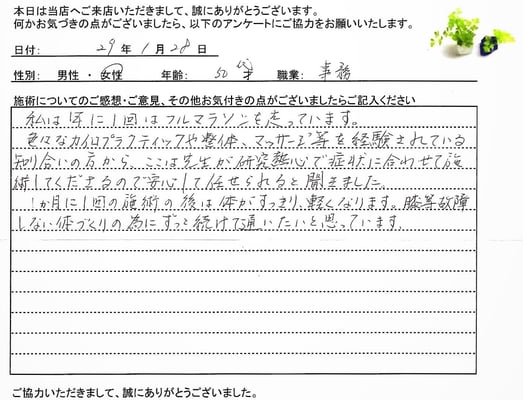 本日は当店へご来店いただきまして、誠にありがとうございます。
何かお気づきの点がございましたら、以下のアンケートにご協力をお願いいたします。
日付: 29年1月28日
性別: 男性・女性 年齢: 50代才 職業: 事務
施術についてのご感想・ご意見、その他お気付きの点がございましたらご記入ください
私は年に1回はフルマラソンを走っています。
色々なカイロプラクティックや整体、マッサージ等を経験されている
知り合いの方から、ここは先生が研究熱心で症状に合わせて施
術してくださるので安心して任せられると聞きました。
1か月に1回の施術の後は体がすっきり、軽くなります。膝等故障
しない体づくりの為にずっと続けて通いたいと思っています。
ご協力いただきまして、誠にありがとうございました。